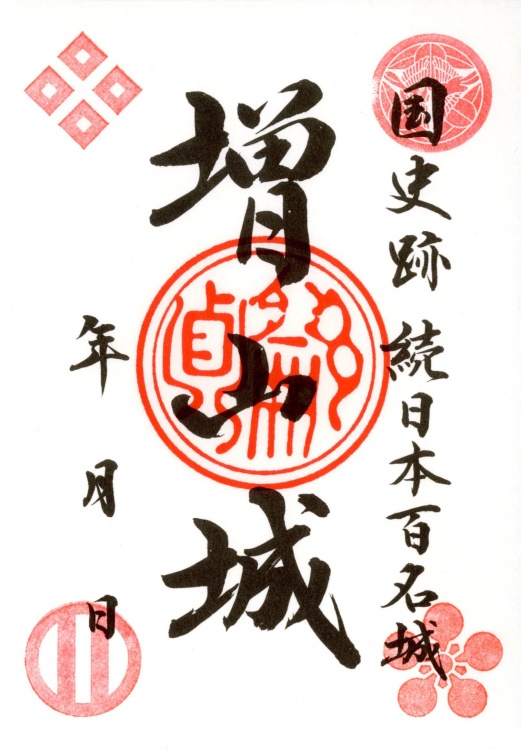 国史跡 続日本百名城
増山城
年 月 日